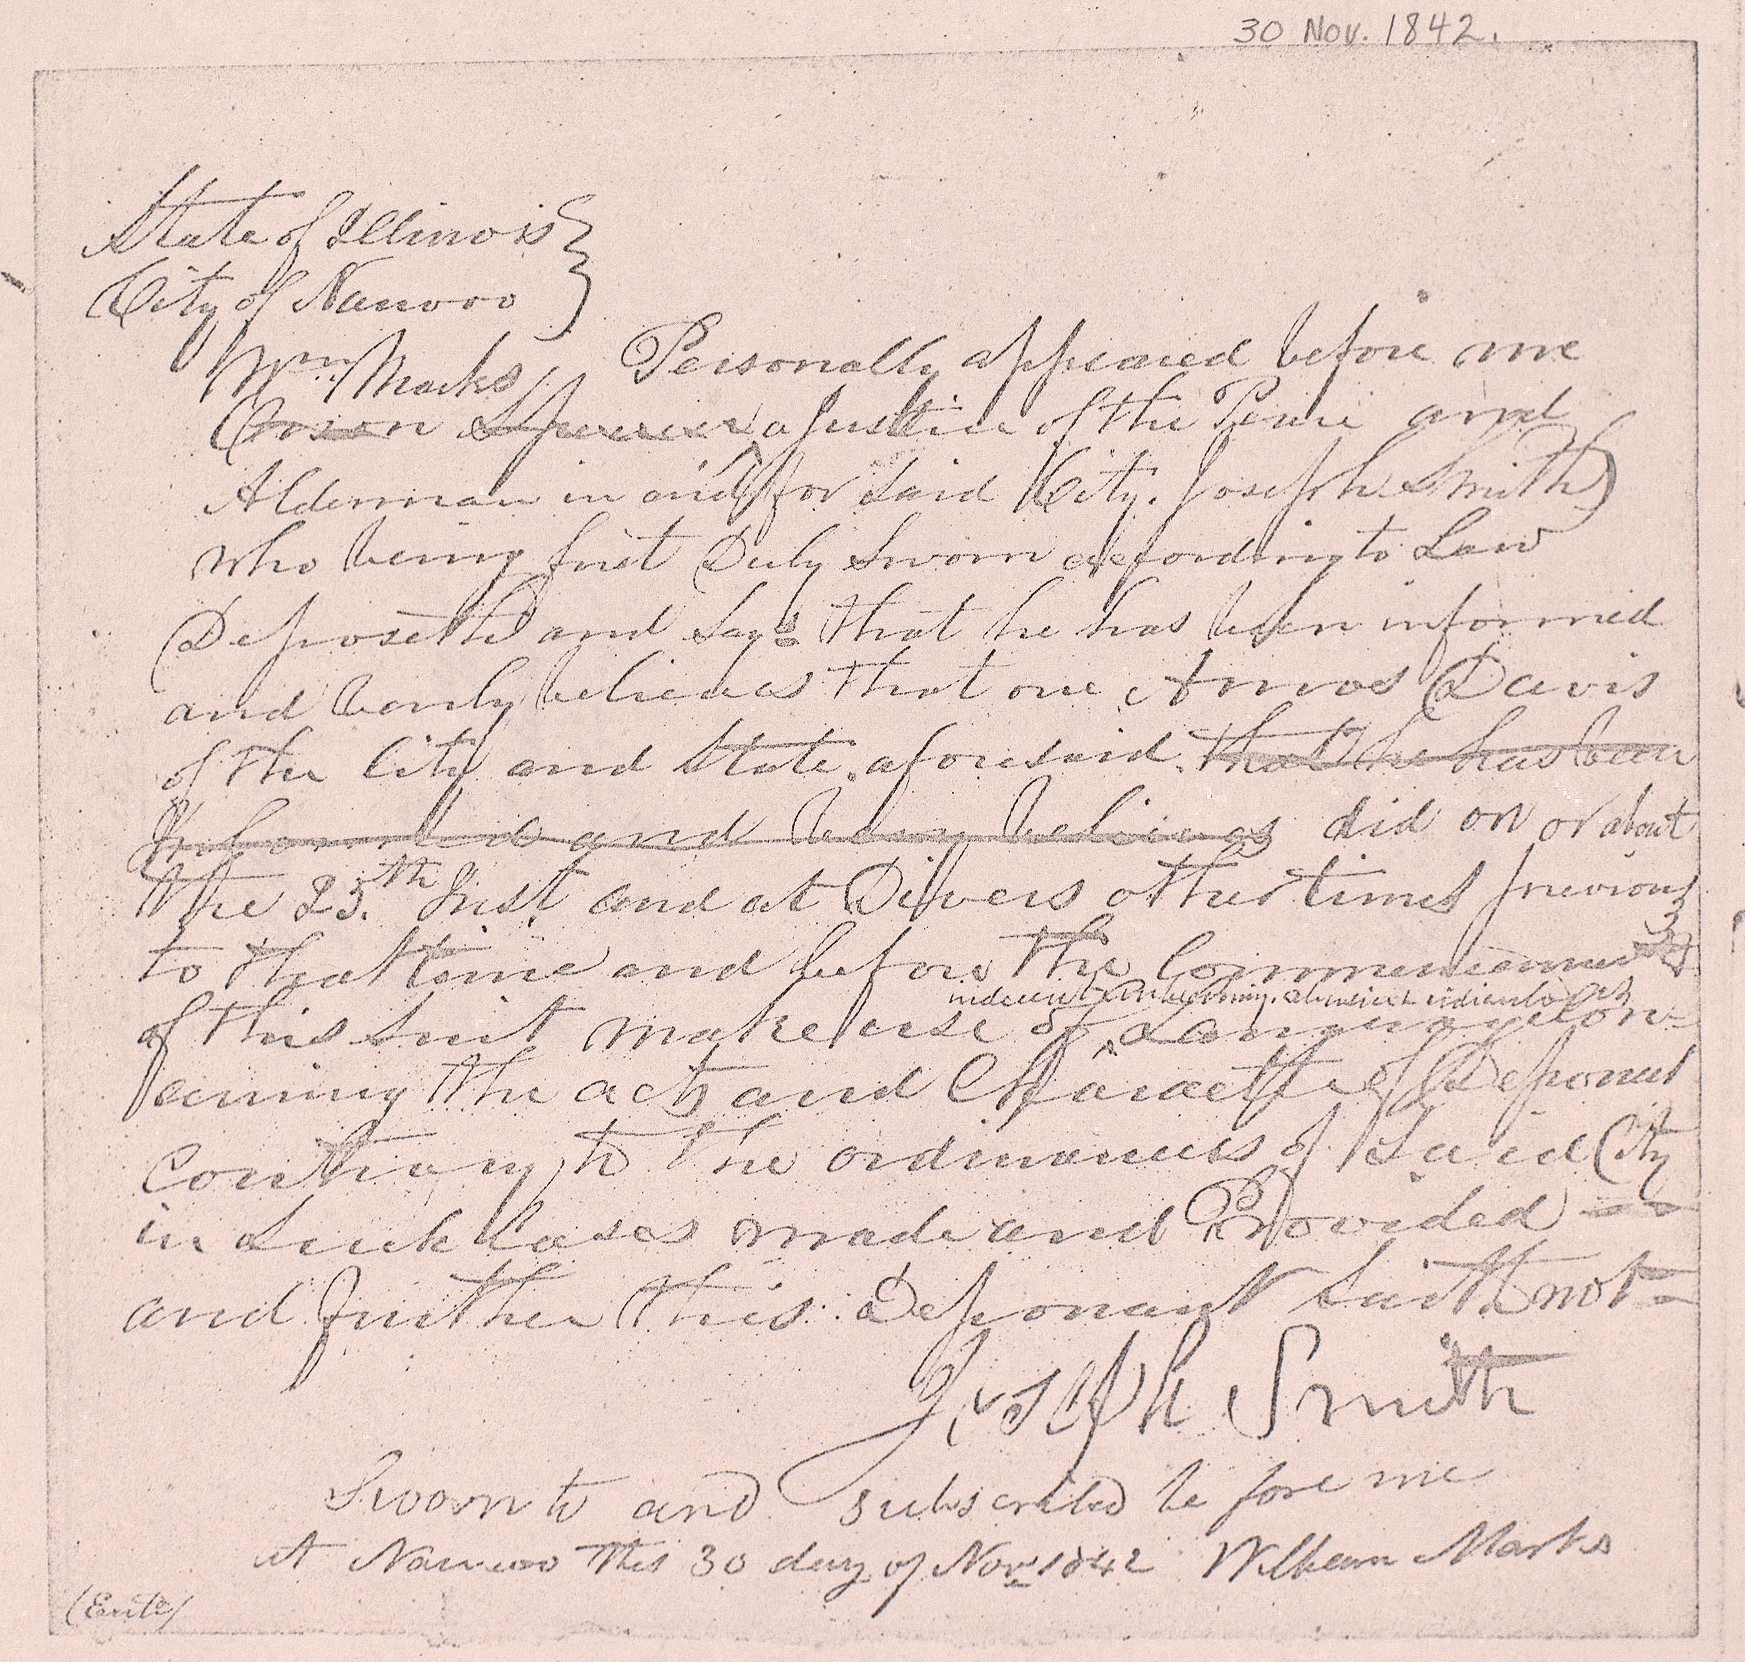 30 Nov. 1842.
State of Illinois
City of Nauvoo
Wm. Marks Personally appeared before me
Orson Spencer a Justice of the Peace and
Alderman in and for Said City. Joseph Smith
who being first Duly Sworn according to Law
Deposeth and Says that he has been informed
and verily believes that one Amos Davis
of the City and State aforesaid. that he has been
Informed and beleives did on or about
the 25th Inst and at Divers other times previous
to that time and before the Commencement
of this Suit make use of indecent unbecoming, abusive language con-
cerning the act and Character of Deponent
Contrary to the ordinances of Said City
in Such Cases made and Provided
and further this Deponant Saith not
Joseph Smith
Sworn to and subscribed be fore me
at Nauvoo this 30 day of Nov 1842 William Marks